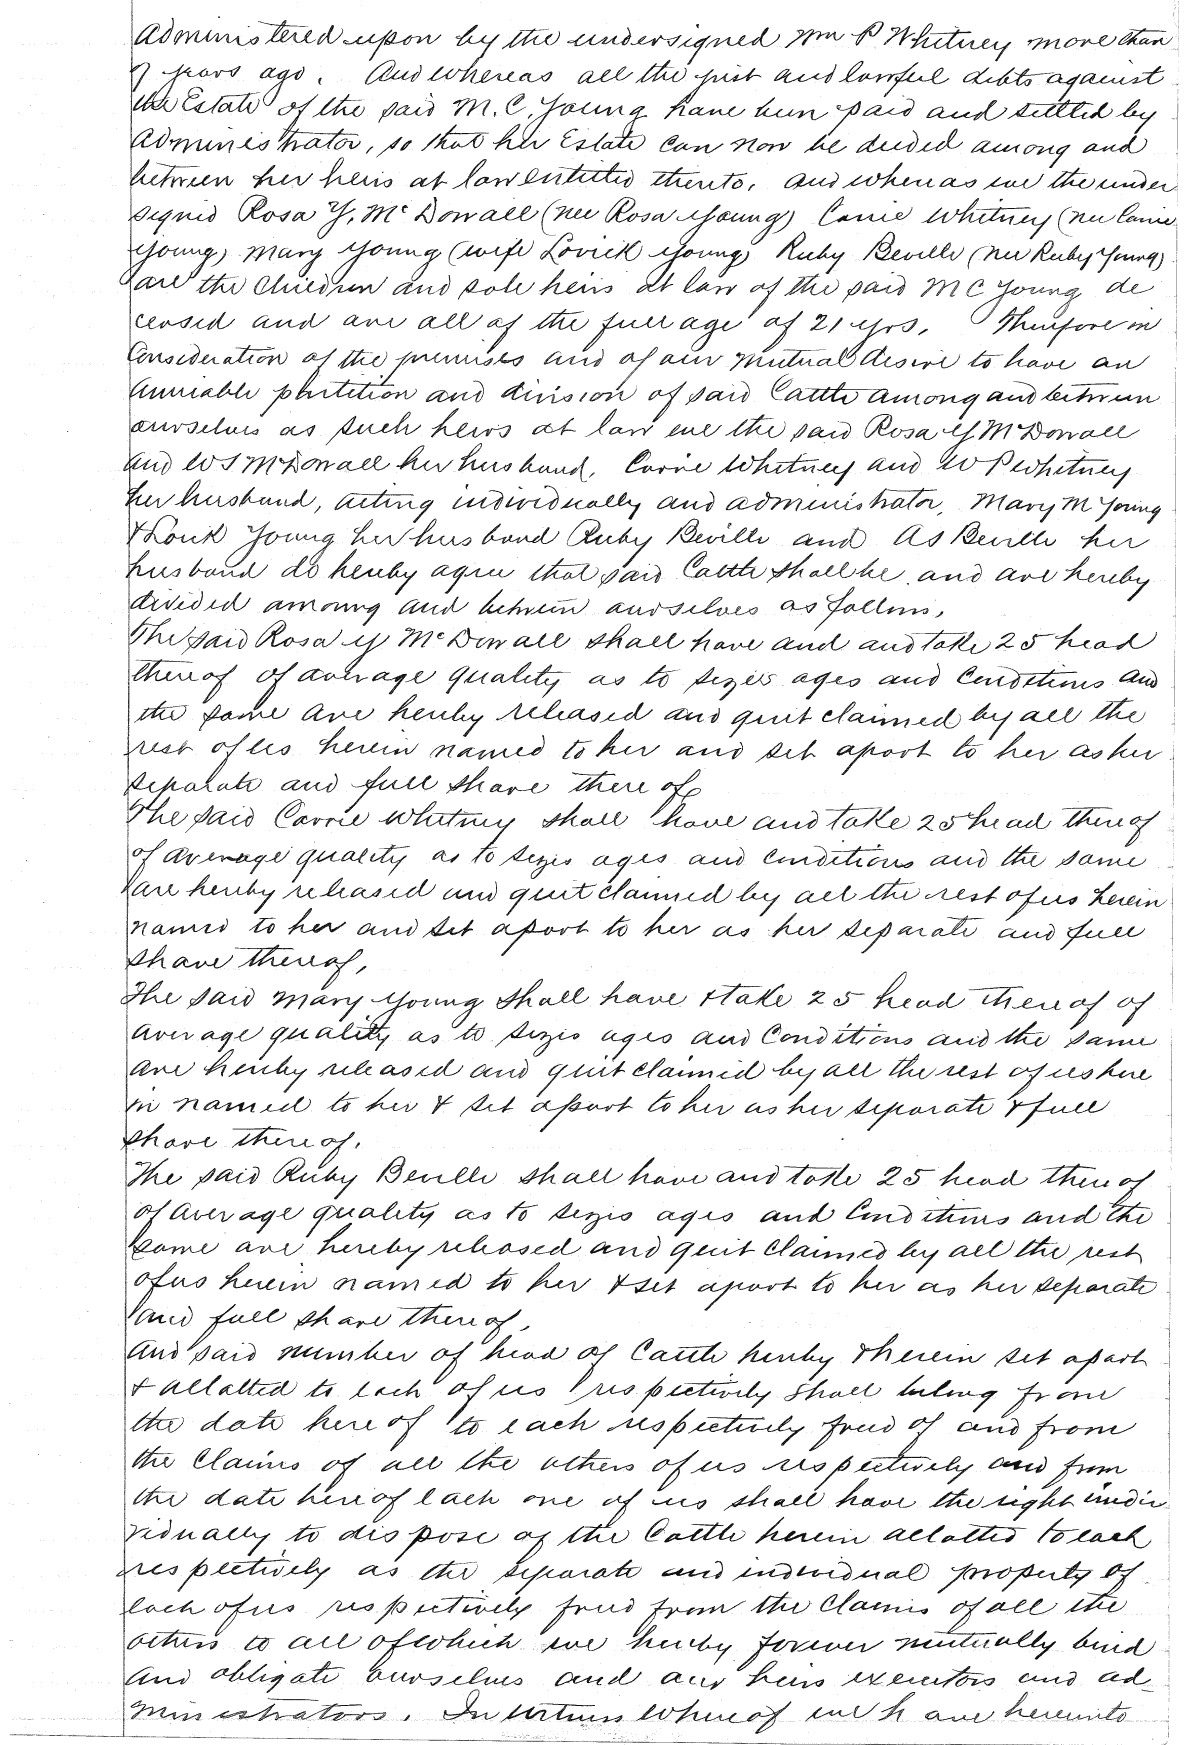 Administered upon by the undersigned Wm P Whitney more than
years ago. And whereas all the just and lawful debts against
the Estate of the said M. C. Young have been paid and settled by
Administrator, so that her Estate can now be deeded among and
between her heirs at law entitled thereto, and whereas we the under
signed Rosa Y. McDowall (nee Rosa Young) Carrie Whitney (nee Carrie
Young) Mary Young (wife Lovick Young) Ruby Beville (nee Ruby Young)
are the children and sole heirs at law of the said M C Young de
ceased and are all of the full age of 21 yrs. Therefore in
Consideration of the premises and of our mutual desire to have an
Amicable partition and division of said Cattle among and between
ourselves as such heirs at law we the said Rosa Y McDowall
and WS McDowall her husband, Carrie Whitney and W P Whitney
her husband, acting individually and administrator, Mary M Young
& Lovick Young her husband Ruby Beville and AS Beville her
husband do hereby agree that said Cattle shall be and are hereby
divided among and between ourselves as follows,
The said Rosa Y McDowall shall have and and take 25 head
thereof of average quality as to sizes ages and Conditions and
the same are hereby released and quit claimed by all the
rest of us herein named to her and set apart to her as her
separate and full share there of
The said Carrie Whitney shall have and take 25 head thereof
of average quality as to sizes ages and Conditions and the same
are hereby released and quit claimed by all the rest of us herein
named to her and set apart to her as her separate and full
share thereof,
The said Mary Young Shall have & take 25 head thereof of
average quality as to sizes ages and Conditions and the same
are hereby released and quit claimed by all the rest of us here
in named to her & set apart to her as her separate & full
share thereof.
The said Ruby Beville shall have and take 25 head thereof
of average quality as to sizes ages and Conditions and the
same are hereby released and quit claimed by all the rest
of us herein named to her & set apart to her as her separate
and full share thereof,
And said number of head of Cattle hereby & herein set apart
& allotted to each of us respectively shall belong from
the date here of to each respectively freed of and from
the Claims of all the others of us respectively and from
the date here of each one of us shall have the right indi
vidually to dispose of the Cattle herein allotted to each
respectively as the separate and individual property of
each of us respectively freed from the Claims of all the
others to all of which we hereby forever mutually bind
and obligate ourselves and our heirs executors and ad
ministrators. In witness Whereof we have hereunto